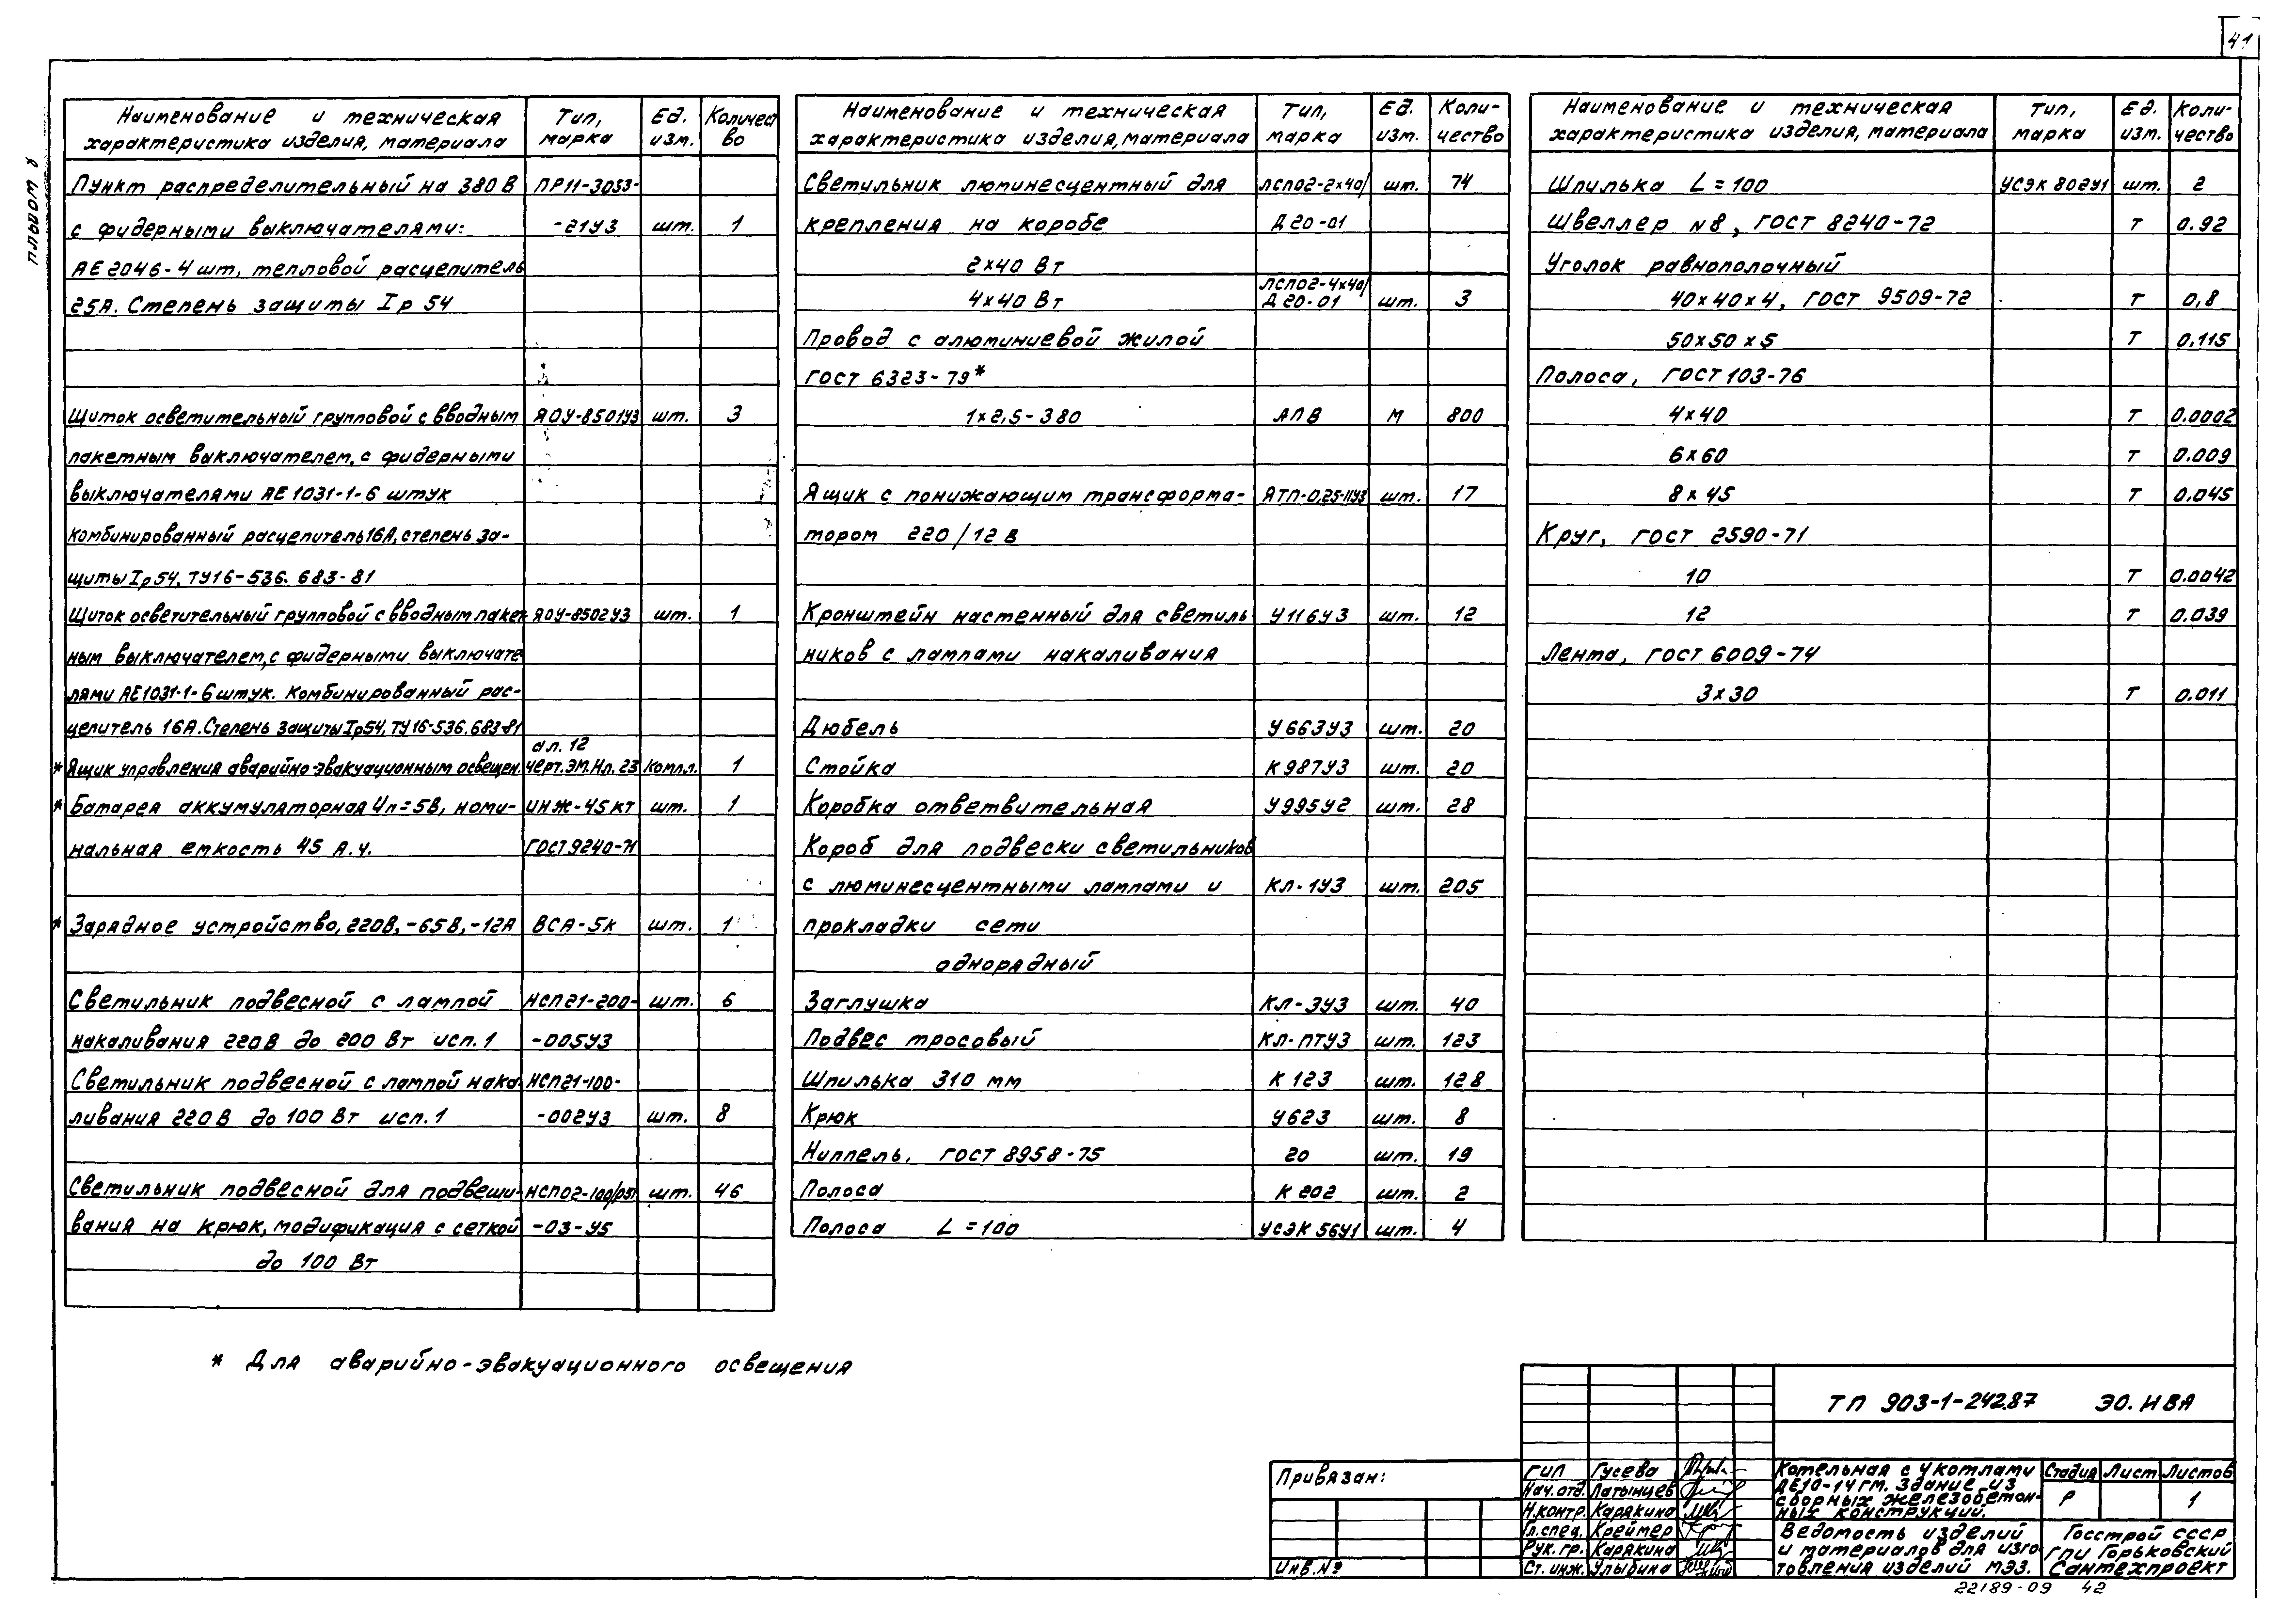 41
Альбом 8
Наименование и техническая характеристика изделия, материала | Тип, марка | Ед. изм. | Количество
Пункт распределительный на 380 В | ПР11-3053-
с фидерными выключателями: | -21У3 | шт. | 1
АЕ 2046-4 шт, тепловой расцепитель
25А. Степень защиты Iр 54
Щиток осветительный групповой с вводным | ЯОУ-8501У3 | шт. | 3
пакетным выключателем, с фидерными
выключателями АЕ 1031-1-6 штук
комбинированный расцепитель 16А, степень за-
щиты Iр54, ТУ16-536. 683-81
Щиток осветительный групповой с вводным пакет | ЯОУ-8502У3 | шт. | 1
ным выключателем, с фидерными выключате
лями АЕ1031-1-6 штук. Комбинированный рас-
цепитель 16А. Степень защиты Iр54, ТУ16-536.683-81
ал. 12
* Ящик управления аварийно-эвакуационным освещен. | черт. ЭМ.Нл. 23 | компл. | 1
* Батарея аккумуляторная Uп=5В, номи- | ИНЖ-45 КТ | шт. | 1
нальная емкость 45 А.ч. | ГОСТ 9240-71
* Зарядное устройство, 220В, -65В, -12А | ВСА-5к | шт. | 1
Светильник подвесной с лампой | НСП21-200- | шт. | 6
накаливания 220В до 200 Вт исп. 1 | -005У3
Светильник подвесной с лампой нака- | НСП21-100-
ливания 220 В до 100 Вт исп. 1 | -002У3 | шт. | 8
Светильник подвесной для подвеши- | НСП02-100/Р51 | шт. | 46
вания на крюк, модификация с сеткой | -03-У5
до 100 Вт
Наименование и техническая характеристика изделия, материала | Тип, марка | Ед. изм. | Коли-чество
Светильник люминесцентный для | ЛСП02-2х40/ | шт. | 74
крепления на коробе | Д20-01
2х40 Вт
ЛСП02-4х40/
4х40 Вт | Д20-01 | шт. | 3
Провод с алюминиевой жилой
ГОСТ 6323-79*
1х2,5-380 | АПВ | М | 800
Ящик с понижающим трансформа- | ЯТП-0,25-11У3 | шт. | 17
тором 220/12 В
Кронштейн настенный для светиль- | У116У3 | шт. | 12
ников с лампами накаливания
Дюбель | У663У3 | шт. | 20
Стойка | К987У3 | шт. | 20
Коробка ответвительная | У995У2 | шт. | 28
Короб для подвески светильников
с люминесцентными лампами и | КЛ-1У3 | шт. | 205
прокладки сети
однорядный
Заглушка | КЛ-3У3 | шт. | 40
Подвес тросовый | КЛ-ПТУ3 | шт. | 123
Шпилька 310 мм | К 123 | шт. | 128
Крюк | У623 | шт. | 8
Ниппель, ГОСТ 8958-75 | 20 | шт. | 19
Полоса | К 202 | шт. | 2
Полоса L=100 | УСЭК 56У1 | шт. | 4
Наименование и техническая характеристика изделия, материала | Тип, марка | Ед. изм. | Коли-чество
Шпилька L=100 | УСЭК 802У1 | шт. | 2
Швеллер N8, ГОСТ 8240-72 | Т | 0.92
Уголок равнополочный
40х40х4, ГОСТ 9509-72 | Т | 0,8
50х50х5 | Т | 0,115
Полоса, ГОСТ 103-76
4х40 | Т | 0.0002
6х60 | Т | 0.009
8х45 | Т | 0.045
Круг, ГОСТ 2590-71
10 | Т | 0.0042
12 | Т | 0.039
Лента, ГОСТ 6009-74
3х30 | Т | 0.011
* Для аварийно-эвакуационного освещения
ТП 903-1-242.87 ЭО.ИВА
Привязан:
Инв. №
ГИП Гусева
Нач. отд. Латынцев
Н.контр. Карякина
Гл.спец. Креймер
Рук. гр. Карякина
Ст. инж. Улыбина
Котельная с 4 котлами
ДЕ10-14ГМ. Здание из
сборных железобетон-
ных конструкций.
Стадия Лист Листов
Р 1
Ведомость изделий
и материалов для изго
товления изделий МЭЗ.
Госстрой СССР
ГПИ Горьковский
Сантехпроект
22189-09 42